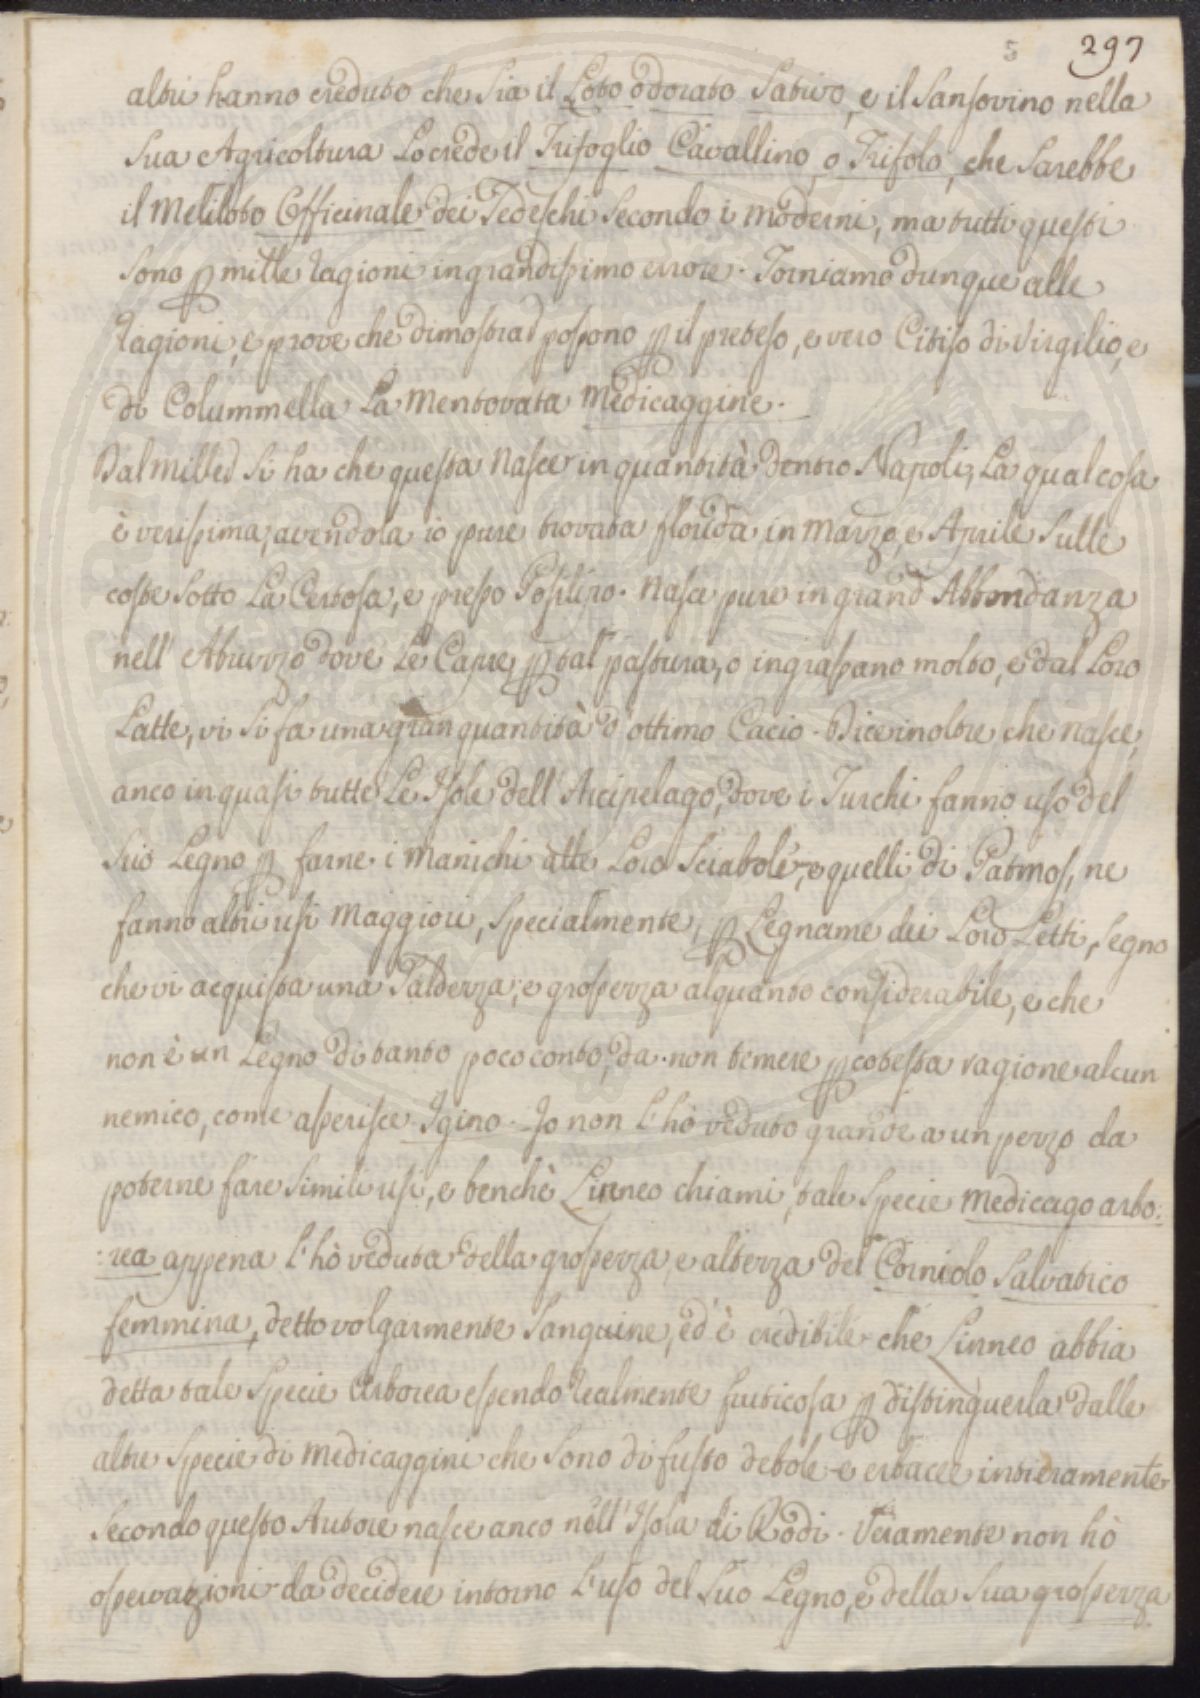 5 297
altri hanno creduto che sia il Loto odorato Sativo, e il Sansovino nella
sua Agricoltura Lo crede il Trifoglio Cavallino, o Trifolo, che Sarebbe
il Meliloto Officinale dei Tedeschi Secondo i moderni, ma tutti questi
Sono p mille ragioni in grandissimo errore. Torniamo dunque alle
ragioni, e prove che dimostrad possono p il preteso, e vero Citiso di Virgilio, e
di Colummella La Mentovata Medicaggine.
Dal Milled si ha che questa Nasce in quantità dentro Napoli, La qual cosa
è verissima, avendola io pure trovata florida in Marzo, e Aprile Sulle
coste Sotto La Certosa, e presso Posilipo. Nasce pure in grand Abbondanza
nell' Abruzzo dove Le Capre p tal pastura, o ingrassano molto, e dal Loro
Latte, vi si fa una gran quantità d' ottimo Cacio. Dice inoltre che nasce,
anco in quasi tutte Le Isole dell' Arcipelago, dove i Turchi fanno uso del
Suo Legno p farne i Manichi alle Loro Sciabole, e quelli di Patmos, ne
fanno altri usi Maggiori, Specialmente, p Legname dei Loro Letti, Segno
che vi acquista una Saldezza, e grossezza alquanto considerabile, e che
non è un Legno di tanto poco conto, da non temere p cotesta ragione alcun
nemico, come asserisce Igino. Io non l'hò veduto grande a un pezzo da
poterne fare Simili usi, e benchè Linneo chiami, tale Specie Medicago arbo:
:rea appena l'hò veduta della grossezza, e altezza del Corniolo Salvatico
femmina, detto volgarmente Sanguine, ed è credibile che Linneo abbia
detta tale Specie Arborea essendo realmente fruticosa p distinguerla dalle
altre Specie di Medicaggini che Sono di fusto debole e erbacee intieramente
Secondo questo Autore nasce anco nell' Isola di Rodi. Veramente non hò
osservazioni da decidere intorno l'uso del Suo Legno, e della Sua grossezza